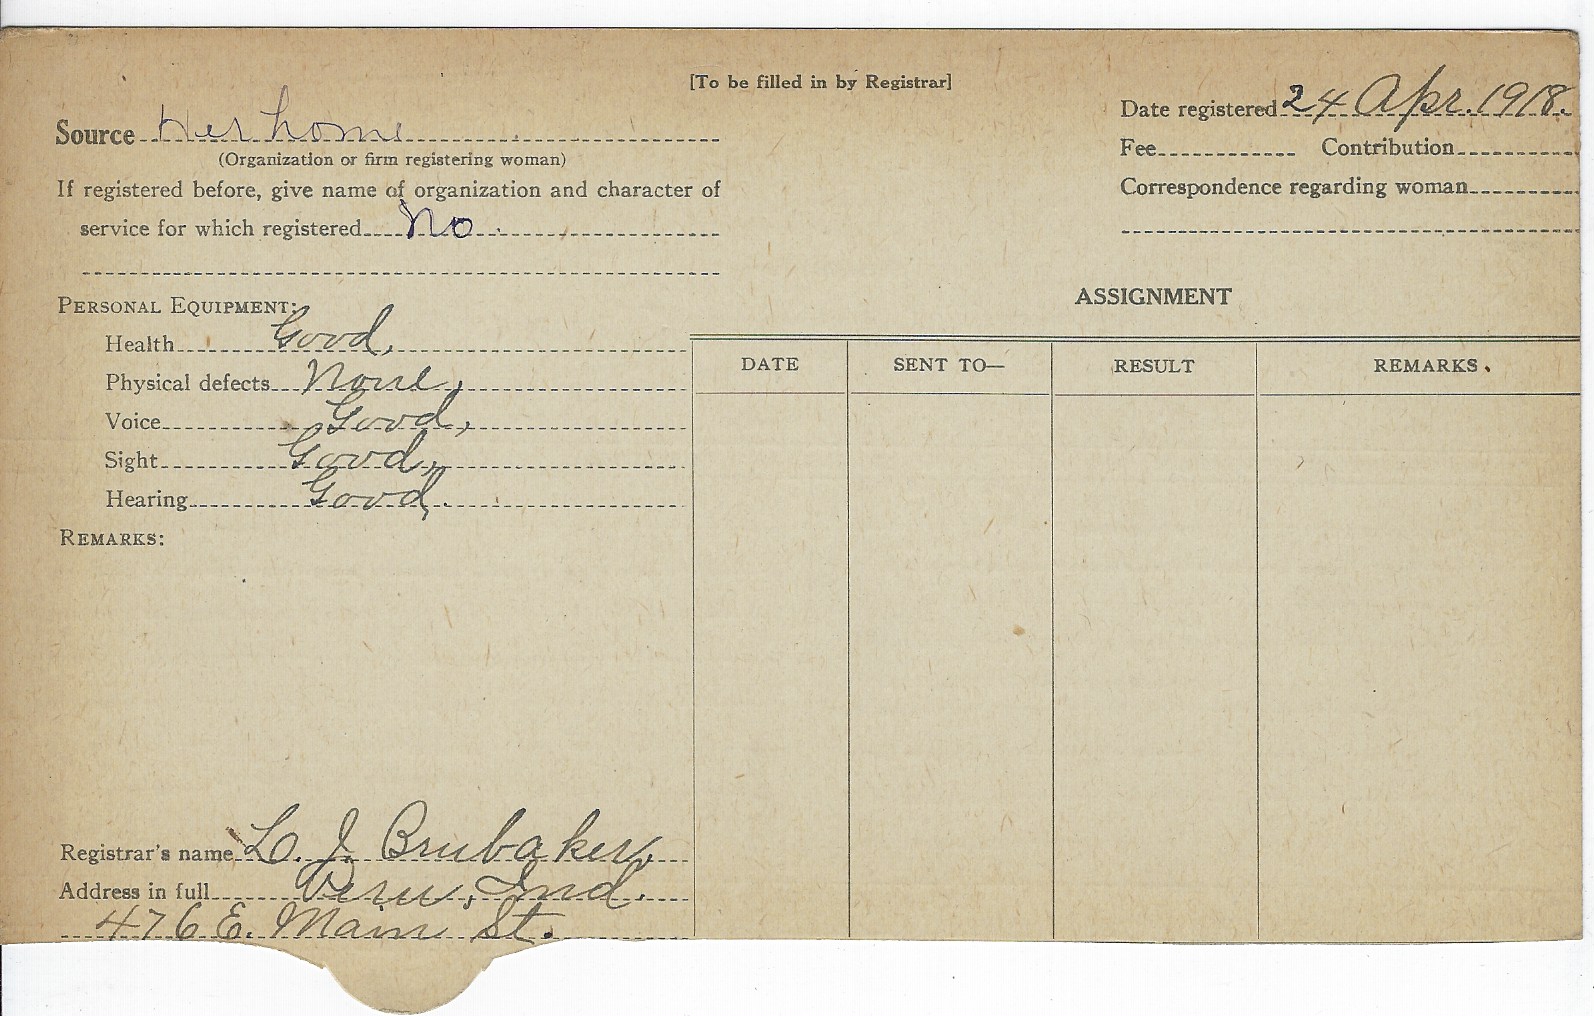 [To be filled in by Registrar]
Source Her home
(Organization or firm registering woman)
If registered before, give name of organization and character of
service for which registered No.
Date registered 24 Apr. 1918.
Fee Contribution
Correspondence regarding woman
PERSONAL EQUIPMENT:
Health Good,
Physical defects None,
Voice Good,
Sight Good,
Hearing Good.
REMARKS:
ASSIGNMENT
DATE SENT TO— RESULT REMARKS.
Registrar's name L. J. Brubaker,
Address in full Peru, Ind.
476 E. Main St.